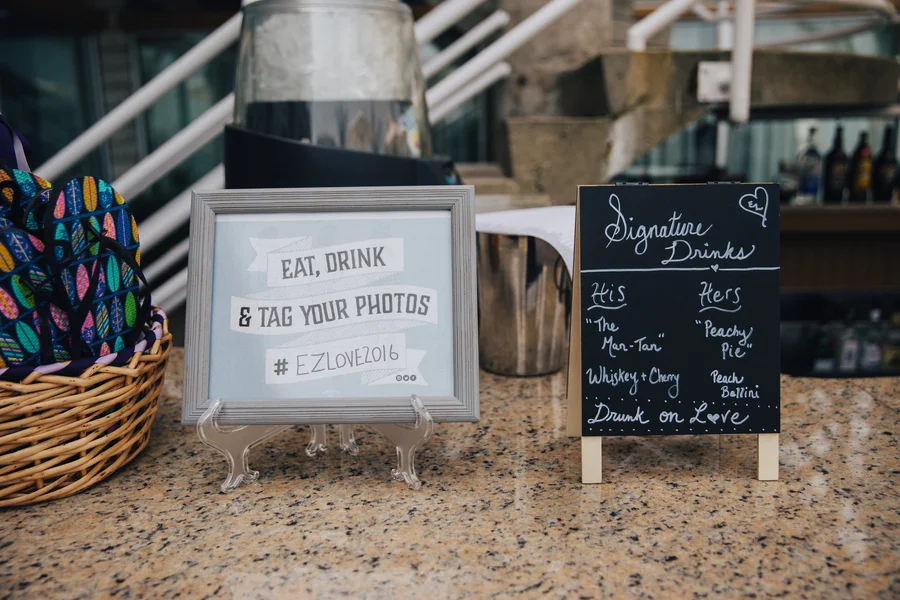 EAT, DRINK
& TAG YOUR PHOTOS
# EZLOVE2016
Signature
Drinks
EZ
His
"The
Man-Tan"
Whiskey + Cherry
Hers
"Peachy
Pie"
Peach
Bellini
Drunk on Love